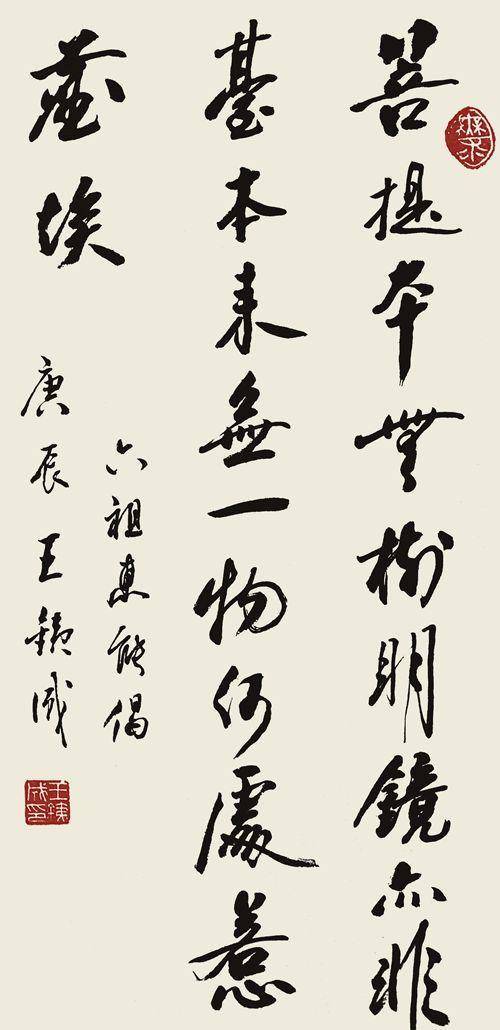 菩提本無樹明鏡亦非
臺本来無一物何處惹
塵埃
六祖惠能偈
庚辰王銕成
王銕成印